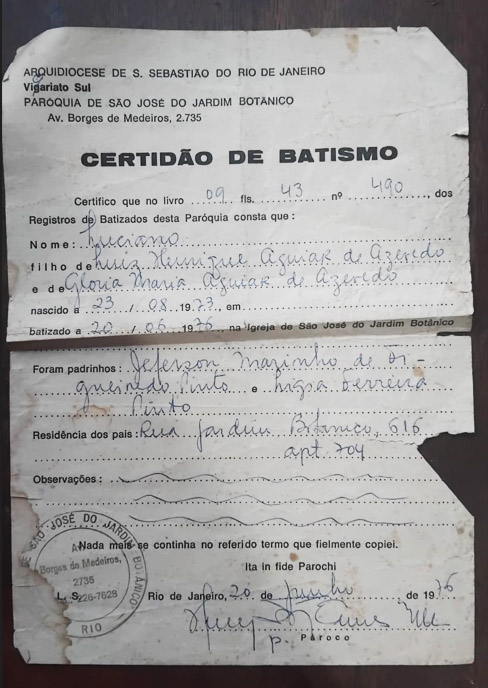 ARQUIDIOCESE DE S. SEBASTIÃO DO RIO DE JANEIRO
Vigariato Sul
PARÓQUIA DE SÃO JOSÉ DO JARDIM BOTÂNICO
Av. Borges de Medeiros, 2.735
CERTIDÃO DE BATISMO
Certifico que no livro 09 fls. 43 nº 490, dos
Registros de Batizados desta Paróquia consta que:
Nome: Luciano
filho de Luiz Henrique Aguiar de Azevedo
e de Gloria Maria Aguiar de Azevedo
nascido a 23 / 08 1973, em
batizado a 20 / 06 1976, na Igreja de São José do Jardim Botânico
Foram padrinhos: Jeferson Marinho de Fi-
gueiredo Pinto e Ligia Ferreira
Pinto
Residência dos pais: Rua Jardim Botanico, 616
apt. 704
Observações:
Nada mais se continha no referido termo que fielmente copiei.
Ita in fide Parochi
Rio de Janeiro, 20 de junho de 1976
P. Pároco
SÃO JOSÉ DO JARDIM BOTÂNICO
Av.
Borges de Medeiros,
2735
L. S. 226-7628
RIO